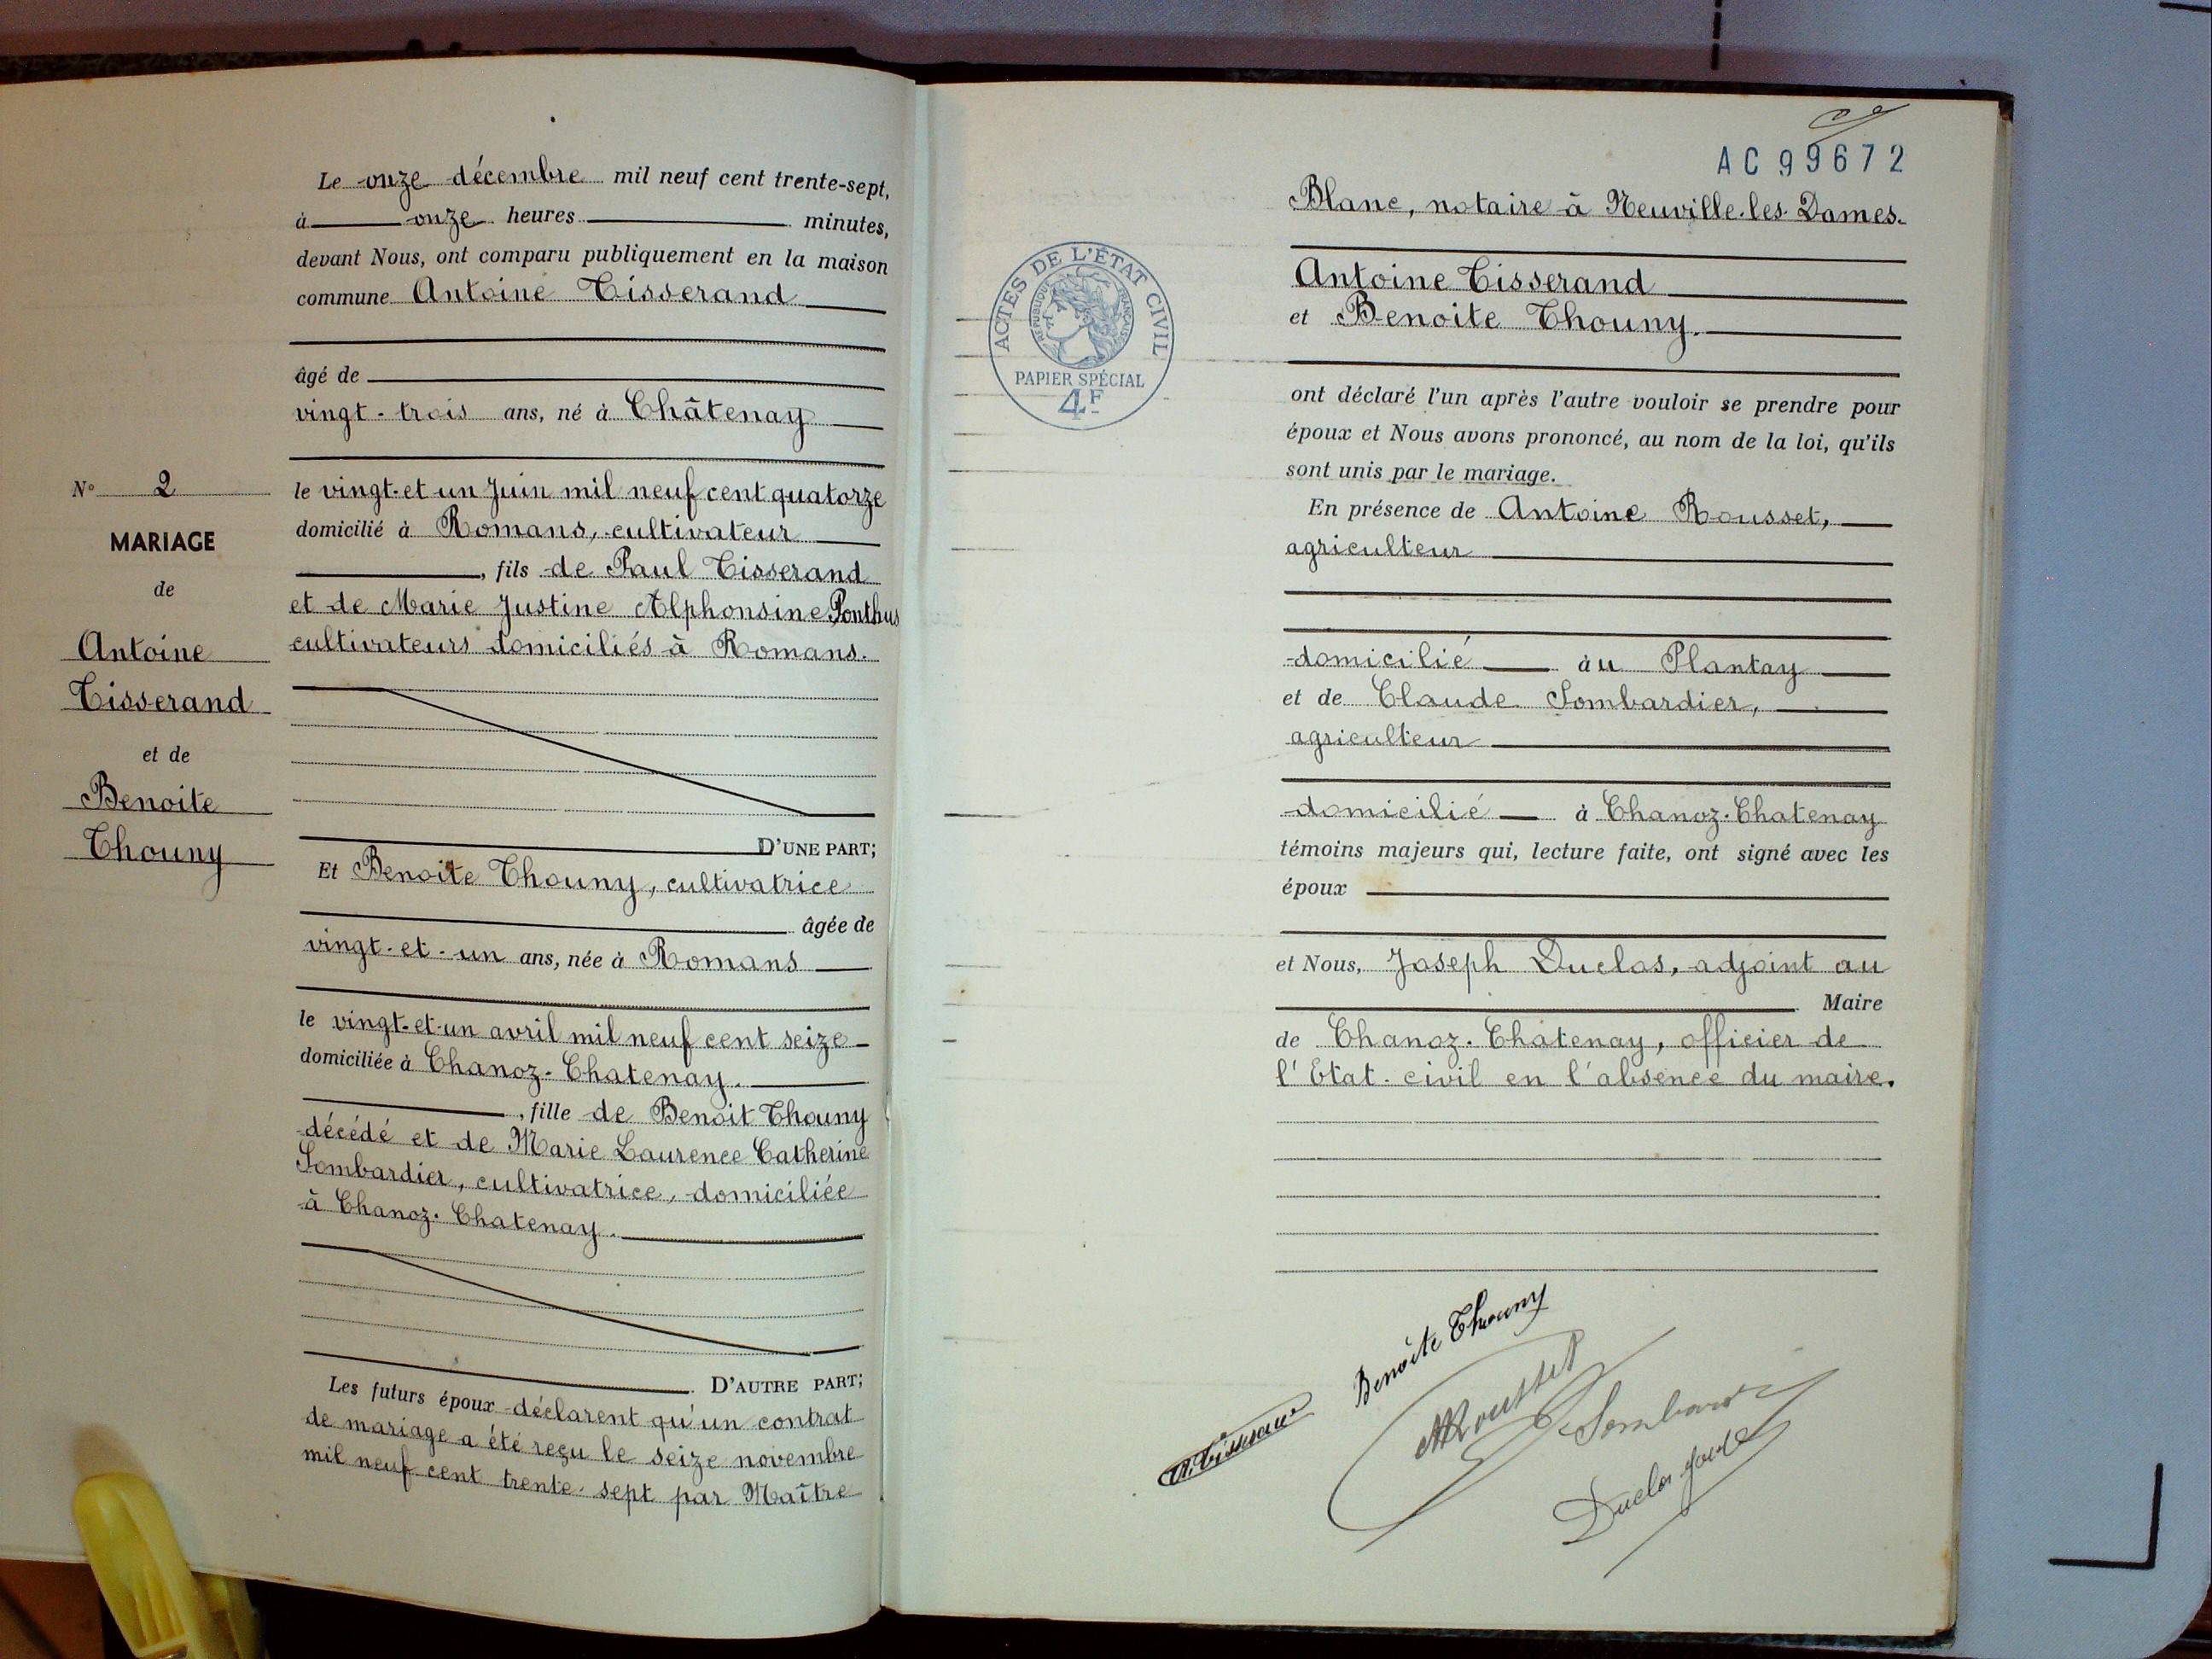 Le onze décembre mil neuf cent trente-sept,
à onze heures minutes,
devant Nous, ont comparu publiquement en la maison
commune Antoine Tisserand
âgé de
vingt-trois ans, né à Châtenay
N° 2
MARIAGE
de
Antoine
Tisserand
et de
Benoite
Thouny
le vingt-et un Juin mil neuf cent quatorze
domicilié à Romans, cultivateur
, fils de Paul Tisserand
et de Marie Justine Alphonsine Ponthus
cultivateurs domiciliés à Romans.
D'UNE PART;
Et Benoite Thouny, cultivatrice
âgée de
vingt-et-un ans, née à Romans
le vingt-et-un avril mil neuf cent seize
domiciliée à Chanoz-Chatenay.
, fille de Benoit Thouny
décédé et de Marie Laurence Catherine
Sombardier, cultivatrice, domiciliée
à Chanoz-Chatenay.
D'AUTRE PART;
Les futurs époux déclarent qu'un contrat
de mariage a été reçu le seize novembre
mil neuf cent trente-sept par Maître
AC 99672
Blanc, notaire à Neuville-les-Dames.
ACTES DE L'ÉTAT CIVIL
RÉPUBLIQUE FRANÇAISE
PAPIER SPÉCIAL
4F
Antoine Tisserand
et Benoite Thouny.
ont déclaré l'un après l'autre vouloir se prendre pour
époux et Nous avons prononcé, au nom de la loi, qu'ils
sont unis par le mariage.
En présence de Antoine Rousset,
agriculteur
domicilié au Plantay
et de Claude Sombardier,
agriculteur
domicilié à Chanoz-Chatenay
témoins majeurs qui, lecture faite, ont signé avec les
époux
et Nous, Joseph Duclos, adjoint au
Maire
de Chanoz-Chatenay, officier de
l'Etat-civil en l'absence du maire.
Benoîte Thouny
A Rousset
Duclos